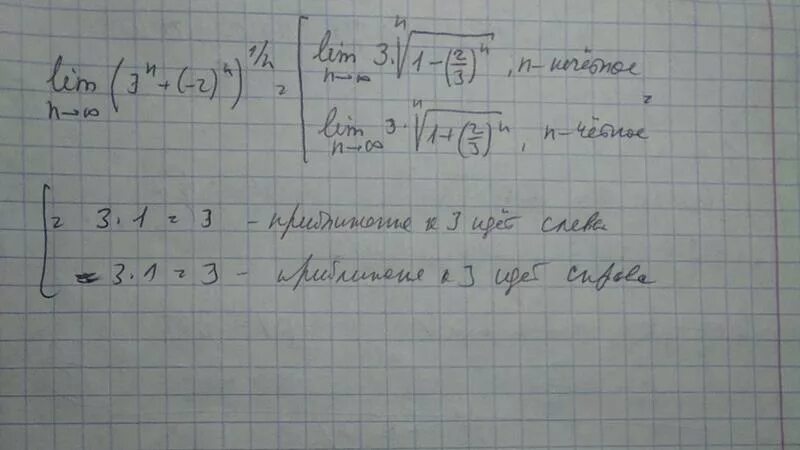 lim n→∞ (3ⁿ + (-2)ⁿ)^1/n = [ lim n→∞ 3·ⁿ√(1-(2/3)ⁿ), n - нечётное
lim n→∞ 3·ⁿ√(1+(2/3)ⁿ), n - чётное =
[ = 3·1 = 3 - приближение к 3 идёт слева
= 3·1 = 3 - приближение к 3 идёт справа